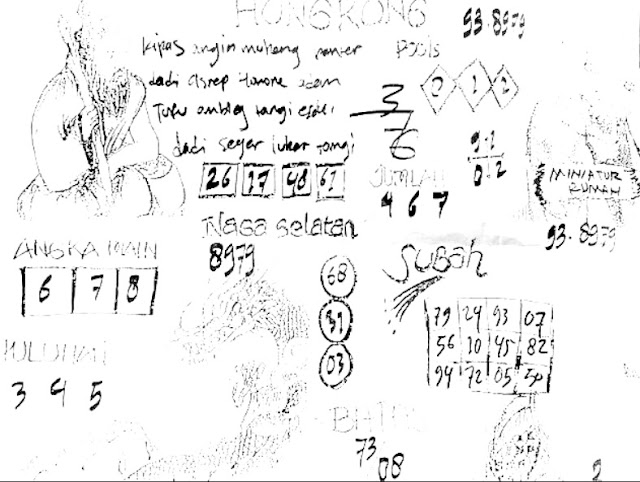 HONGKONG
POOLS
93.8979
Kipas angin muteng
dadi asrep
tangi
dadi seger tangi
3
7
6
2 1 2
9.1
0.2
26 17 48 61
JUMLAH
4 6 7
MINIATUR
RUMAH
93.8979
Naga Selatan
8979
ANGKA MAIN
6 7 8
PULUHAN
3 4 5
68
31
03
SUBAH
79 24 93 07
56 10 45 82
94 72 05 50
73
08
2